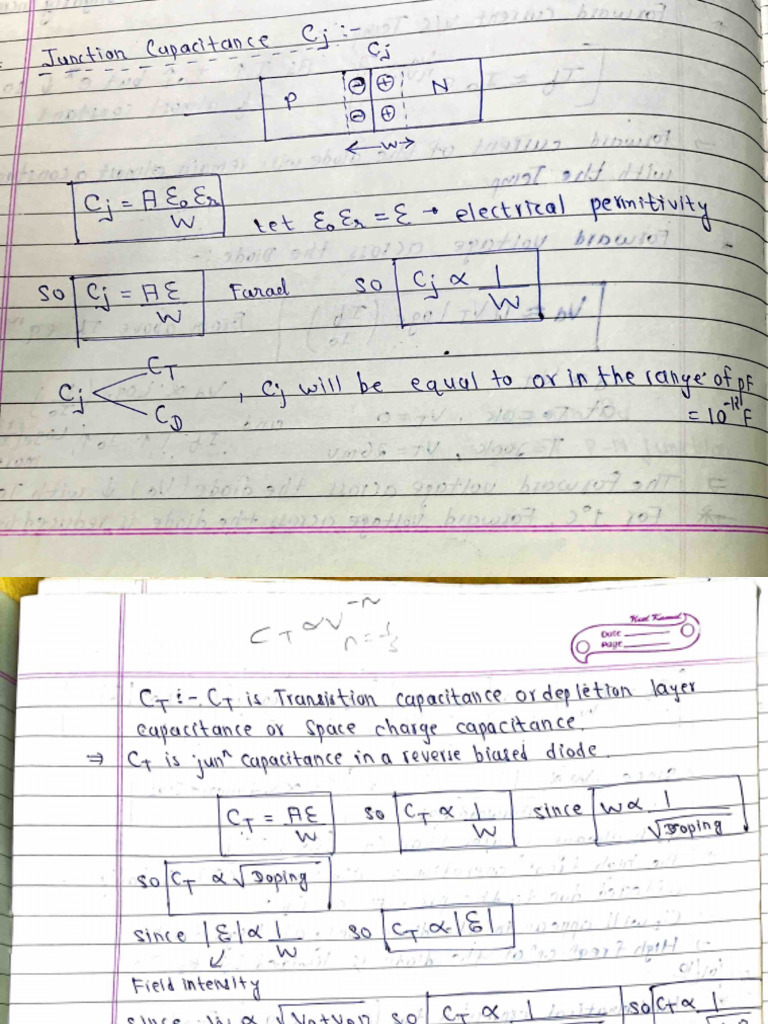 Junction Capacitance Cj :-
Cj
P ⊖ ⊕ N
⊖ ⊕
← W →
Cj = A ε₀ εr / W   let ε₀ εr = ε → electrical permitivity
so Cj = Aε / W Farad   so Cj ∝ 1 / W
Cj < CT CD , Cj will be equal to or in the range of pF
= 10⁻¹² F
CT ∝ V⁻ⁿ
n = 1/3
Date
Page
CT :- CT is Transistion capacitance or depletion layer
capacitance or space charge capacitance.
⇒ CT is junⁿ capacitance in a reverse biased diode.
CT = Aε / W   so CT ∝ 1 / W   since W ∝ 1 / √Doping
so CT ∝ √Doping
since |Ɛ| ∝ 1 / W   so CT ∝ |Ɛ|
↙
Field intensity
so CT ∝ 1   so CT ∝ 1